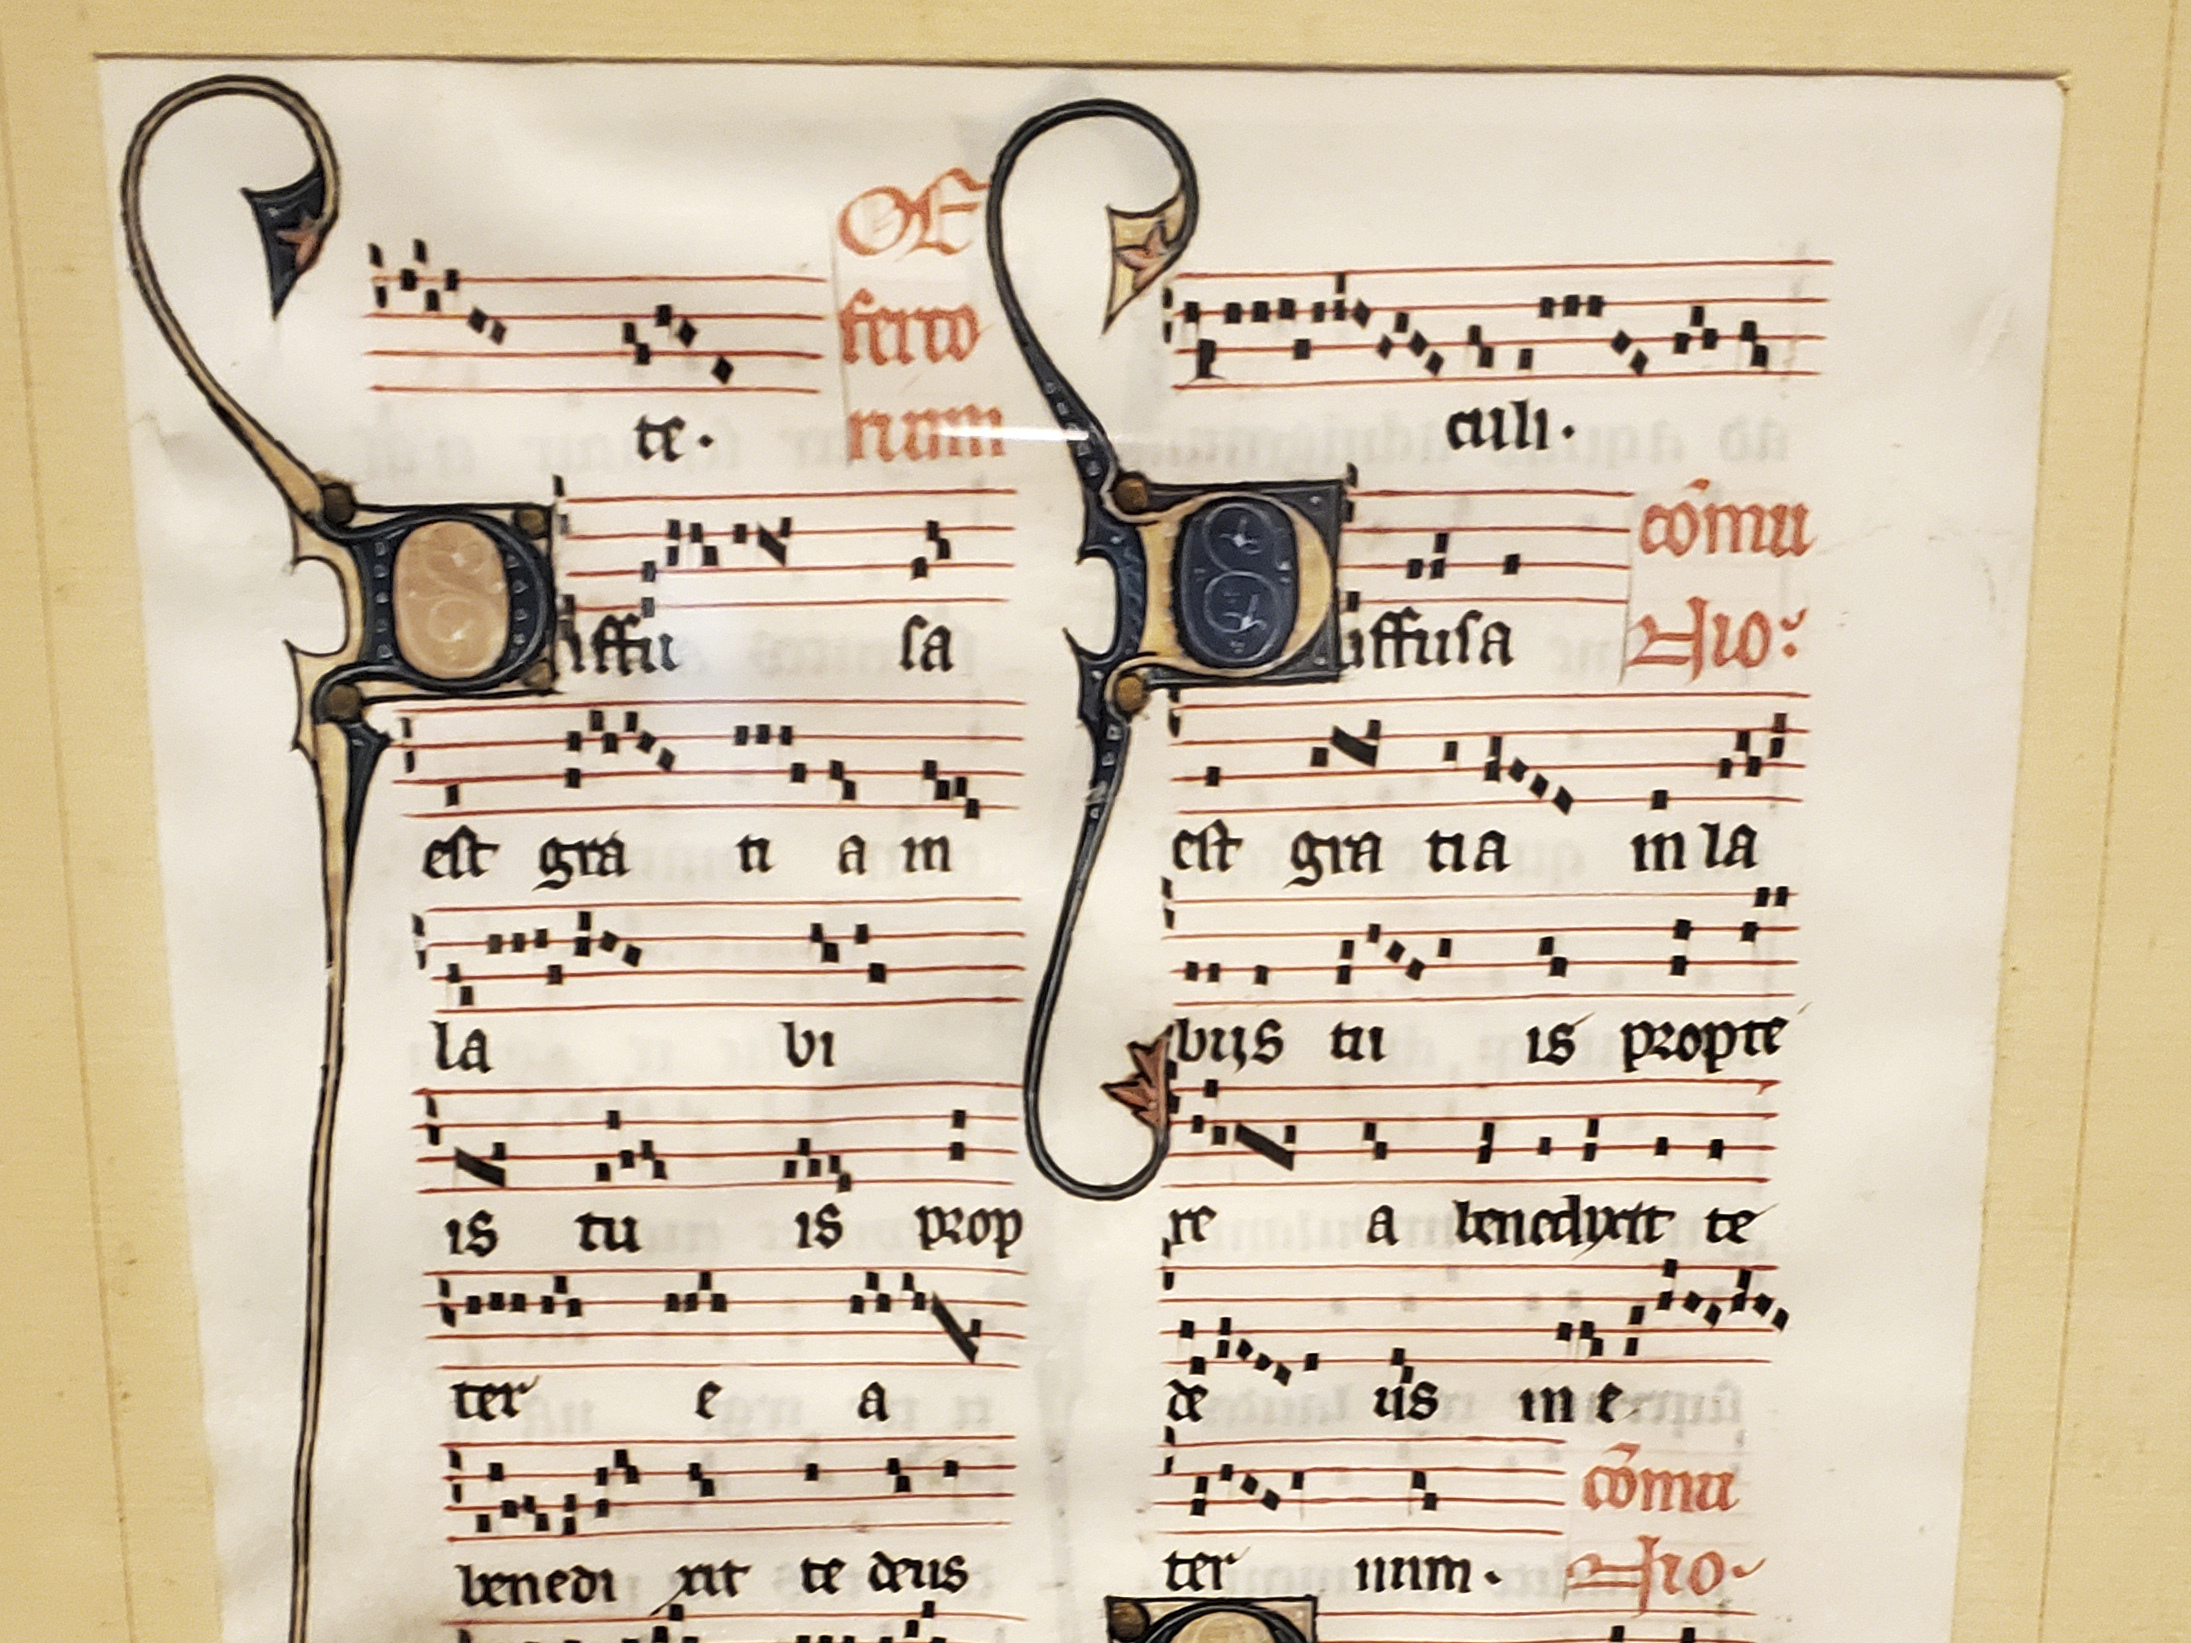 te. OF
ferto
rium
Diffu sa
est gra ti a in
la bi
is tu is prop
ter e a
benedi xit te deus
culi.
Diffusa cōmu
nio.
est gra tia in la
bijs tu is propte
re a benedixit te
de us in e
ter num. cōmu
nio.